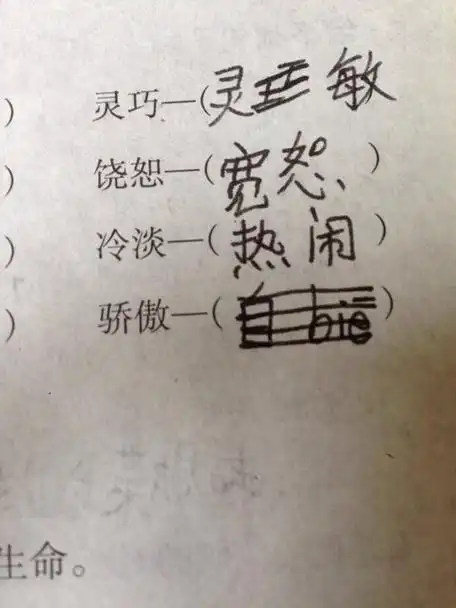 ) 灵巧—(灵敏
) 饶恕—(宽恕)
) 冷淡—(热闹)
) 骄傲—( )
生命。